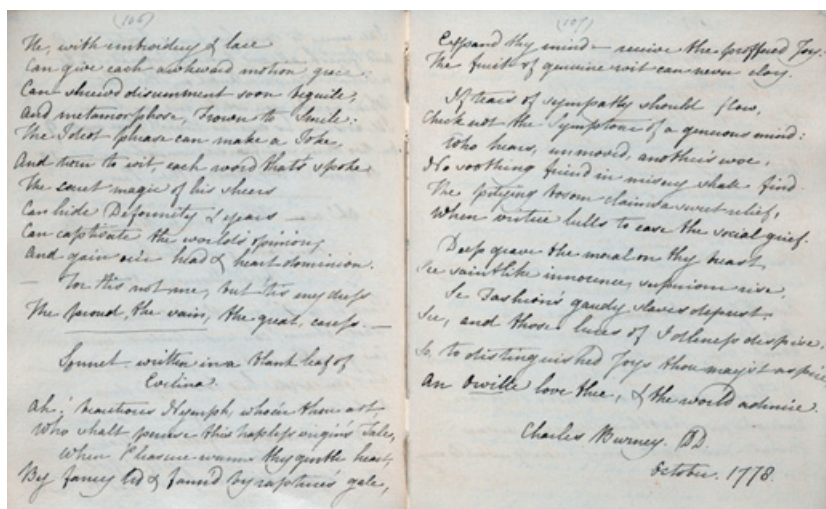 (106)
He, with embroidery & lace
Can give each awkward motion grace:
Can shrewd discernment soon beguile,
And metamorphose, Frown to Smile:
The Ideot phrase can make a Joke,
And turn to wit, each word that's spoke,
The secret magic of his sheers
Can hide Deformity & years —
Can captivate the world's opinion,
And gain o'er head & heart dominion.
— For 'tis not me, but 'tis my dress
The proud, the vain, the great, caress. —
Sonnet written in a blank leaf of
Evelina.
Ah! beauteous Nymph, whoe'er thou art,
Who shalt peruse this hapless virgin's Tale,
When Pleasure warms thy gentle heart,
By fancy led & fann'd by rapture's gale,
(107)
Expand thy mind — receive the proffered Joy:
The fruit of genuine wit can never cloy.
If tears of sympathy should flow,
Check not the Symptons of a generous mind:
Who hears, unmoved, another's woe,
No soothing friend in misery shall find.
The pitying bosom claims a sweet relief,
When virtue bids to ease the social grief.
Deep grave the moral on thy heart,
See saintlike innocence, supreme rise,
See Fashion's gaudy slaves depart,
See, and those lures of Idleness dispise,
So, to distinguished Joys thou may'st aspire,
An Orville love thee, & the world admire.
Charles Burney. DD.
October. 1778.